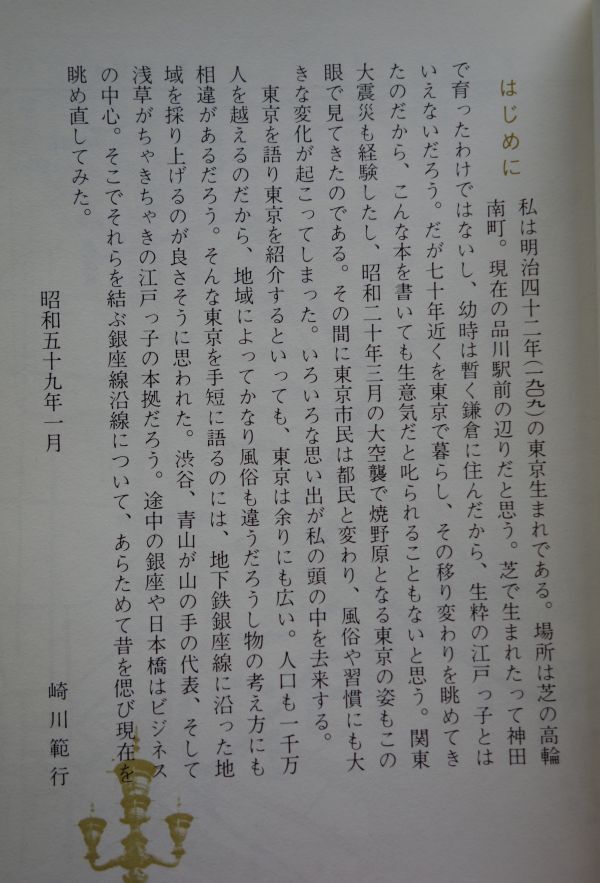 はじめに
私は明治四十二年(一九〇九)の東京生まれである。場所は芝の高輪
南町。現在の品川駅前の辺りだと思う。芝で生まれたって神田
で育ったわけではないし、幼時は暫く鎌倉に住んだから、生粋の江戸っ子とは
いえないだろう。だが七十年近くを東京で暮らし、その移り変わりを眺めてき
たのだから、こんな本を書いても生意気だと叱られることもないと思う。関東
大震災も経験したし、昭和二十年三月の大空襲で焼野原となる東京の姿もこの
眼で見てきたのである。その間に東京市民は都民と変わり、風俗や習慣にも大
きな変化が起こってしまった。いろいろな思い出が私の頭の中を去来する。
東京を語り東京を紹介するといっても、東京は余りにも広い。人口も一千万
人を越えるのだから、地域によってかなり風俗も違うだろうし物の考え方にも
相違があるだろう。そんな東京を手短に語るのには、地下鉄銀座線に沿った地
域を採り上げるのが良さそうに思われた。渋谷、青山が山の手の代表、そして
浅草がちゃきちゃきの江戸っ子の本拠だろう。途中の銀座や日本橋はビジネス
の中心。そこでそれらを結ぶ銀座線沿線について、あらためて昔を偲び現在を
眺め直してみた。
昭和五十九年一月
崎川範行